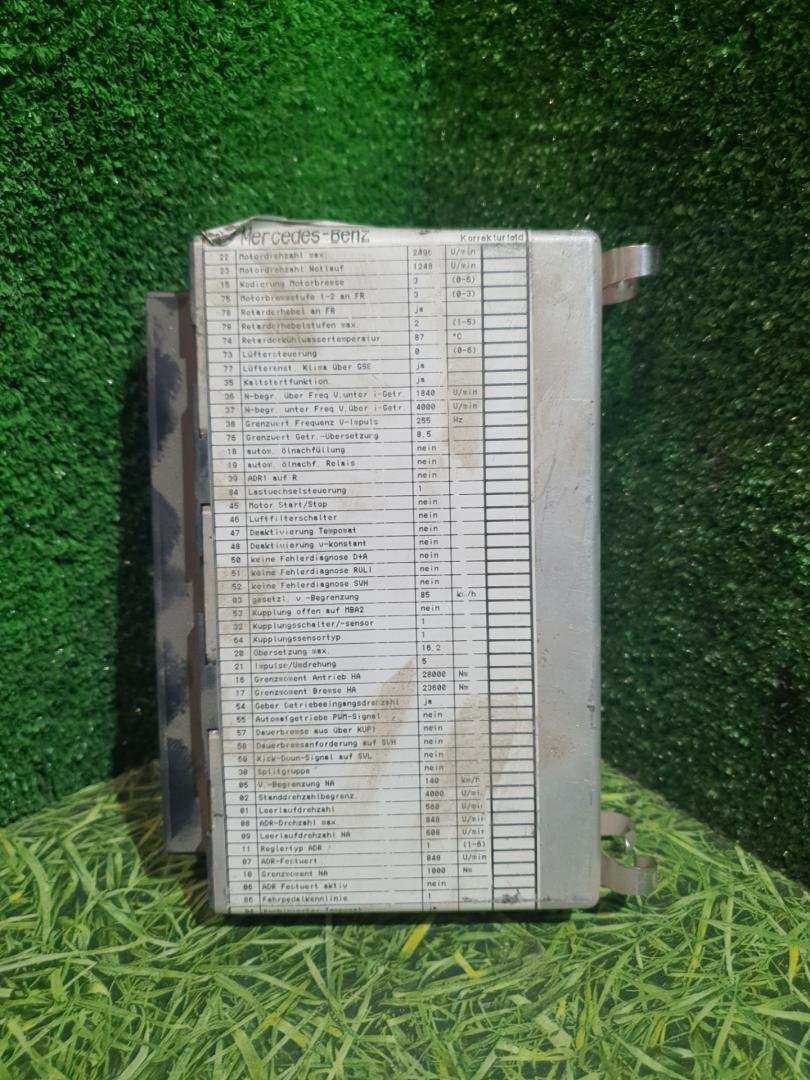 Mercedes-Benz Korrekturfeld
22 Motordrehzahl max 2496 U/min
23 Motordrehzahl Notlauf 1248 U/min
15 Kodierung Motorbremse 3 (0-6)
75 Motorbremsstufe 1-2 an FR 3 (0-3)
78 Retarderhebel an FR ja
79 Retarderhebelstufen max. 2 (1-5)
74 Retarderkühlwassertemperatur 87 °C
73 Lüftersteuerung 0 (0-6)
77 Lüfteranst. Klima über GSE ja
35 Kaltstartfunktion ja
36 N-begr. über Freq V.unter i-Getr. 1840 U/min
37 N-begr. unter Freq V.über i-Getr. 4000 U/min
38 Grenzwert Frequenz V-Impuls 255 Hz
76 Grenzwert Getr.-Übersetzung 8.5
18 autom. ölnachfüllung nein
19 autom. ölnachf. Relais nein
39 ADR1 auf R nein
84 Lastwechselsteuerung 1
45 Motor Start/Stop nein
46 Luftfilterschalter nein
47 Deaktivierung Tempomat nein
48 Deaktivierung v-konstant nein
50 keine Fehlerdiagnose D+A nein
51 keine Fehlerdiagnose RÜLI nein
52 keine Fehlerdiagnose SVH nein
03 gesetzl. v.-Begrenzung 85 km/h
53 Kupplung offen auf MBA2 nein
32 Kupplungsschalter/-sensor 1
64 Kupplungssensortyp 1
20 Übersetzung max. 16.2
21 Impulse/Umdrehung 5
16 Grenzmoment Antrieb HA 28000 Nm
17 Grenzmoment Bremse HA 23600 Nm
54 Geber Getriebeeingangsdrehzahl ja
55 Automatgetriebe PWM-Signal nein
57 Dauerbremse aus über KUP1 nein
58 Dauerbremsanforderung auf SVH nein
59 Kick-Down-Signal auf SVL nein
30 Splitgruppe nein
05 V.-Begrenzung NA 140 km/h
02 Standdrehzahlbegrenz. 4000 U/min
01 Leerlaufdrehzahl 560 U/min
08 ADR-Drehzahl max. 848 U/min
09 Leerlaufdrehzahl NA 608 U/min
11 Reglertyp ADR 1 (1-6)
07 ADR-Festwert 848 U/min
10 Grenzmoment NA 1000 Nm
06 ADR Festwert aktiv nein
86 Fahrpedalkennlinie 1